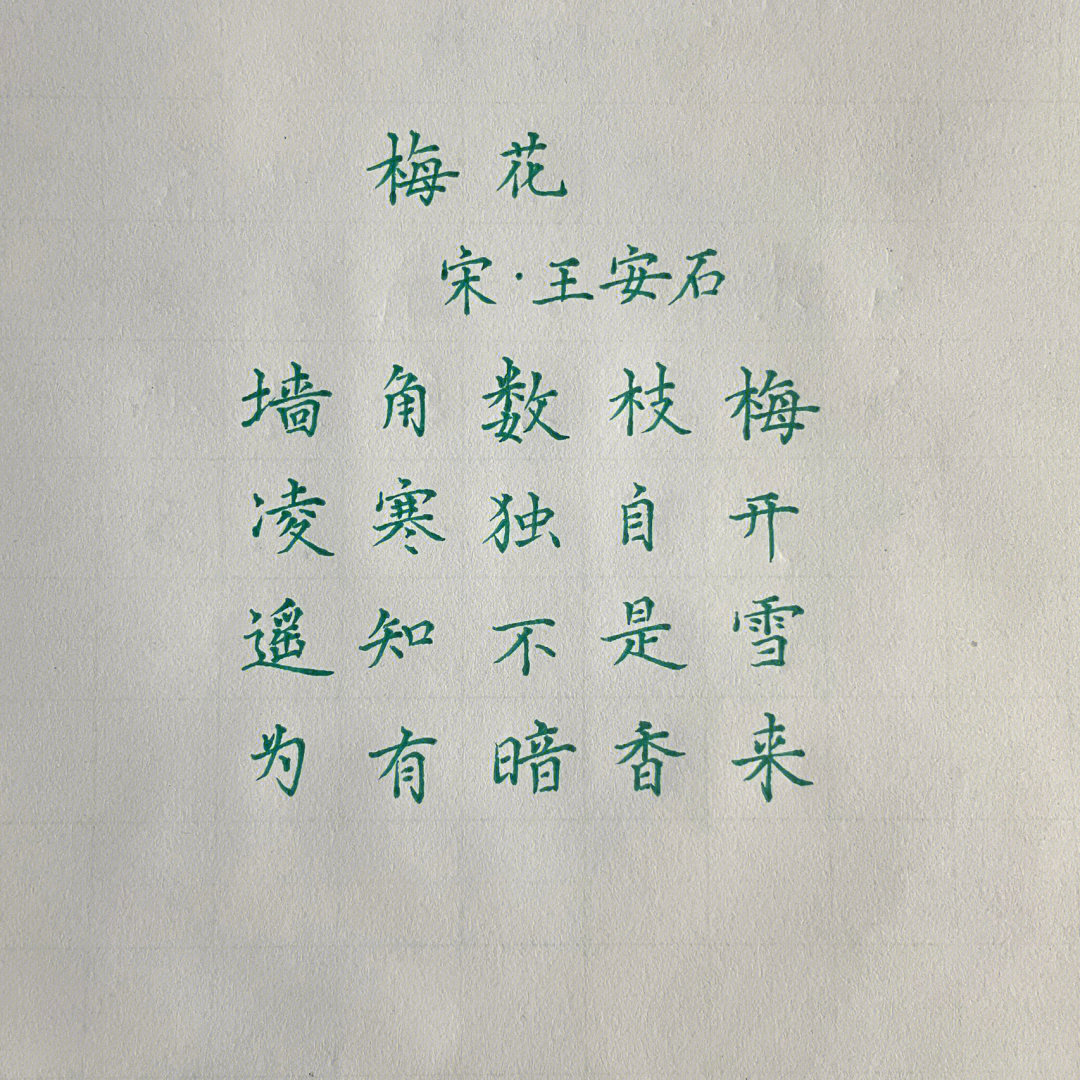 梅花
宋·王安石
墙角数枝梅
凌寒独自开
遥知不是雪
为有暗香来